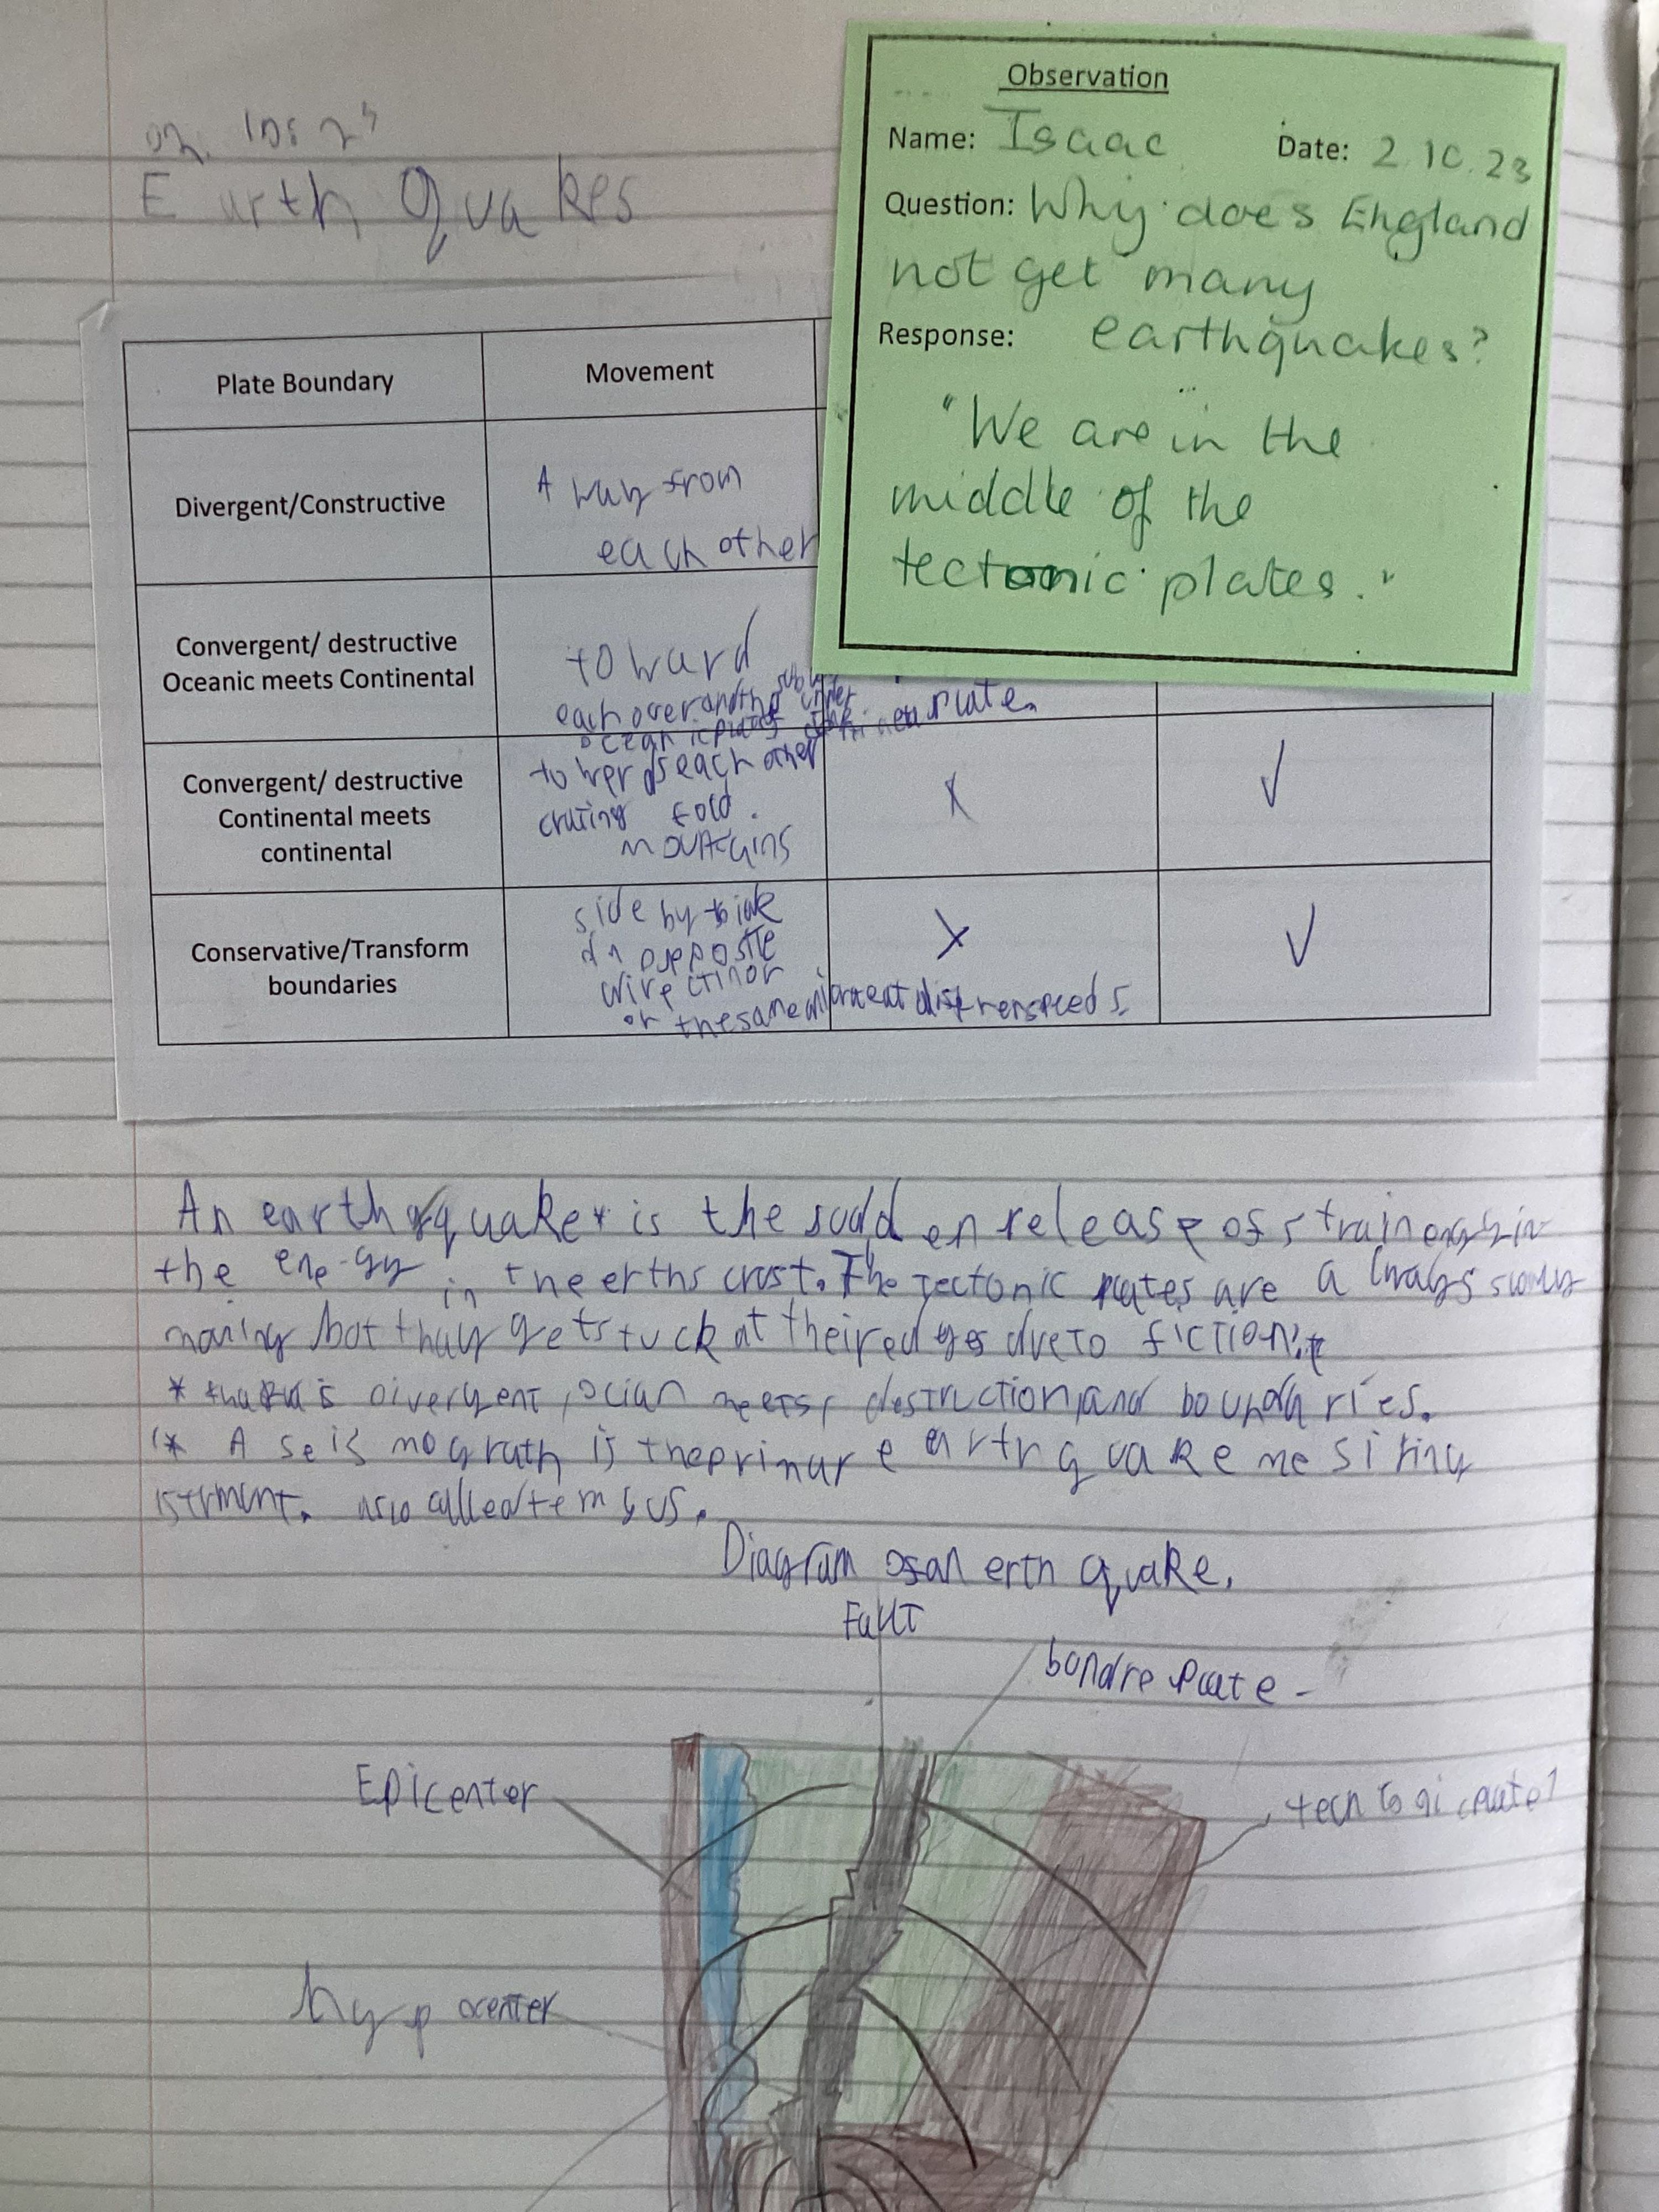 Earth Quakes
Observation
Name: Isaac Date: 2.10.23
Question: Why does England
not get many
Response: earthquakes?
"We are in the
middle of the
tectonic plates."
Plate Boundary
Movement
Divergent/Constructive
A way from
each other
Convergent/ destructive
Oceanic meets Continental
toward
each over and the
oceanic plate
plate.
Convergent/ destructive
Continental meets
continental
towerds each other
crating fold.
mountains
X
✓
Conservative/Transform
boundaries
side by side
in opposite
direction or
or the same at speeds.
X
✓
An earthquake is the sudden release of strain energy in
the energy in the erths crust. The tectonic plates are always slowly
moving bot thay get stuck at their edges due to fiction.
* divergent, ocian meets, destruction, and boundaries.
* A seismograth is the primare earthquake mesiring
isterment. also called
Diagram of an erth quake.
Fault
bondre plate -
Epicenter
hypocenter
plate